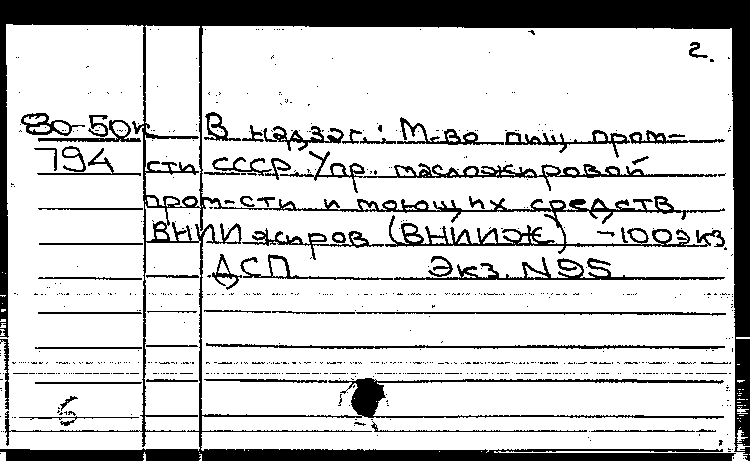 2.
80-50к В надзаг.: М-во пищ. пром-
794 сти СССР. Упр. масложировой
пром-сти и моющих средств,
ВНИИ жиров (ВНИИЖ) -100экз.
ДСП Экз. N95
6